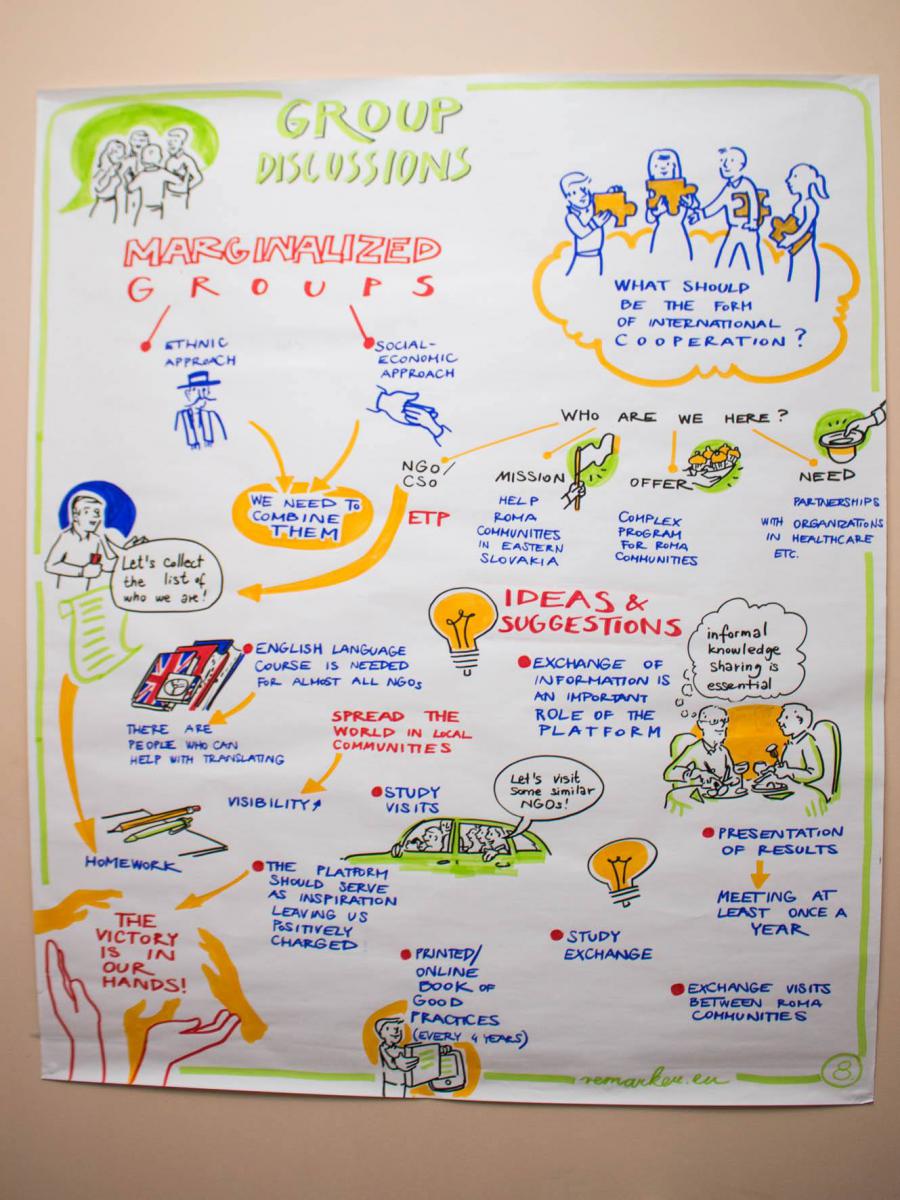 GROUP
DISCUSSIONS
MARGINALIZED
GROUPS
ETHNIC
APPROACH
SOCIAL-
ECONOMIC
APPROACH
WE NEED TO
COMBINE
THEM
WHAT SHOULD
BE THE FORM
OF INTERNATIONAL
COOPERATION?
WHO ARE WE HERE?
NGO/
CSO
ETP
MISSION
HELP
ROMA
COMMUNITIES
IN EASTERN
SLOVAKIA
OFFER
COMPLEX
PROGRAM
FOR ROMA
COMMUNITIES
NEED
PARTNERSHIPS
WITH ORGANIZATIONS
IN HEALTHCARE
ETC.
Let's collect
the list of
who we are!
IDEAS &
SUGGESTIONS
ENGLISH LANGUAGE
COURSE IS NEEDED
FOR ALMOST ALL NGOs
THERE ARE
PEOPLE WHO CAN
HELP WITH TRANSLATING
SPREAD THE
WORLD IN LOCAL
COMMUNITIES
VISIBILITY
EXCHANGE OF
INFORMATION IS
AN IMPORTANT
ROLE OF THE
PLATFORM
informal
knowledge
sharing is
essential
STUDY
VISITS
Let's visit
some similar
NGOs!
HOMEWORK
THE PLATFORM
SHOULD SERVE
AS INSPIRATION
LEAVING US
POSITIVELY
CHARGED
THE
VICTORY
IS IN
OUR
HANDS!
PRESENTATION
OF RESULTS
MEETING AT
LEAST ONCE A
YEAR
STUDY
EXCHANGE
PRINTED/
ONLINE
BOOK OF
GOOD
PRACTICES
(EVERY 4 YEARS)
EXCHANGE VISITS
BETWEEN ROMA
COMMUNITIES
remarker.eu
8